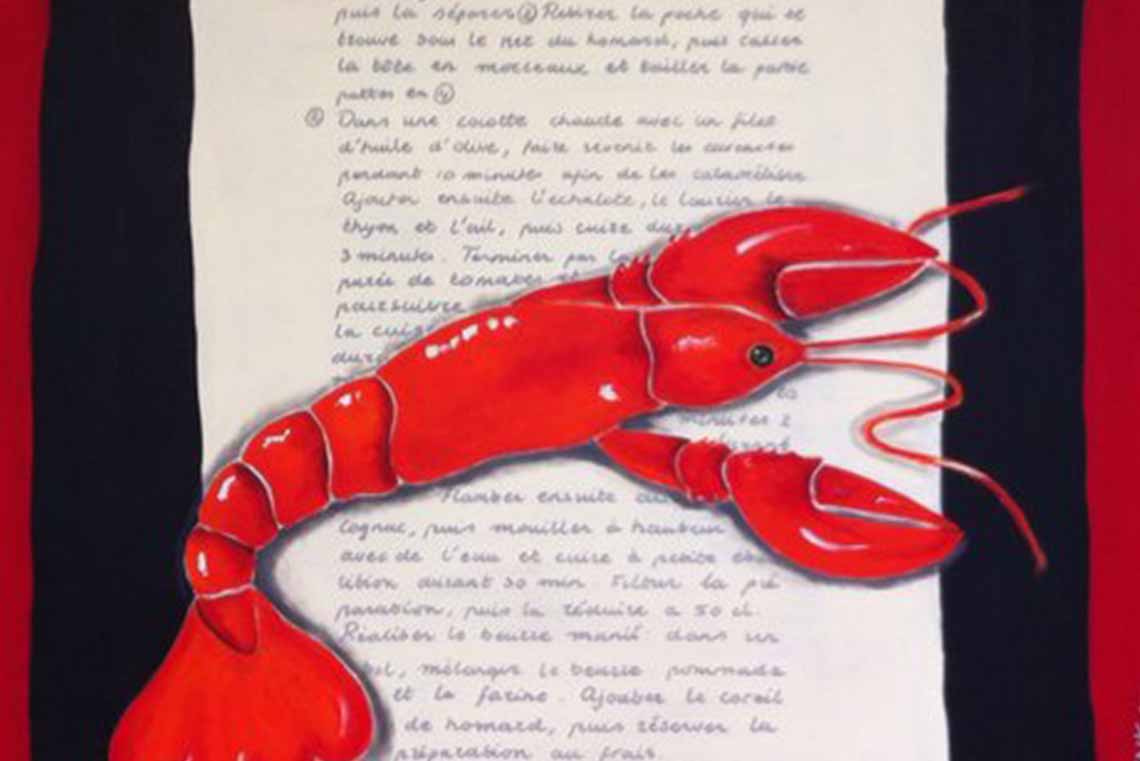 puis la séparer ② Retirer la poche qui se
trouve sous le nez du homard, puis casser
la tête en morceaux et tailler la partie
pattes en ④
Dans une cocotte chaude avec un filet
d'huile d'olive, faire revenir les carcasses
pendant 10 minutes afin de les
Ajouter ensuite l'échalote, le laurier le
thym et l'ail, puis cuire
3 minutes. Terminer par la
purée de tomates et
poursuivre
la cuis
minutes 2
durant
Flamber ensuite au
Cognac, puis mouiller à hauteur
avec de l'eau et cuire à petite
lition durant 30 min. Filtrer la pré
paration, puis la réduire a 50 cl.
Réaliser le beurre manié: dans un
mélanger le beurre pommade
et la farine. Ajouter le corail
de homard, puis réserver la
préparation au frais.